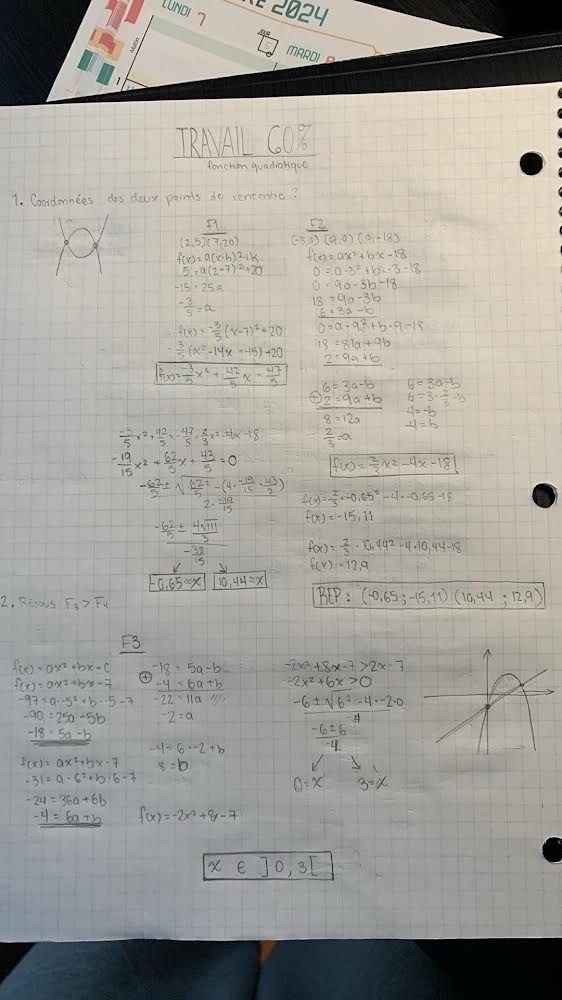 LUNDI 7
RE 2024
MARDI 8
Matin
1
TRAVAIL 60%
fonction quadratique
1. Coordonnées des deux points de rencontre ?
F1
(2,5)(7,20)
f(x)=a(x-h)²+k
5 = a(2-7)²+20
-15 = 25a
-3/5 = a
f(x)= -3/5 (x-7)²+20
-3/5 (x²-14x+45)+20
f(x)= -3/5 x² + 42/5 x - 47/5
F2
(-3,0) (9,0) (0,-18)
f(x)= ax²+bx-18
0 = a·-3²+b·-3-18
0 = 9a-3b-18
18 = 9a-3b
6 = 3a-b
0 = a·9²+b·9-18
18 = 81a+9b
2 = 9a+b
6 = 3a-b
⊕ 2 = 9a+b
8 = 12a
2/3 = a
6 = 3a-b
6 = 3·2/3-b
4 = -b
-4 = b
f(x)= 2/3 x²-4x-18
-3/5 x²+42/5 x-47/5 = 2/3 x²-4x-18
-19/15 x² + 62/5 x + 43/5 = 0
-62/5 ± √(62/5² -(4·-19/15·43/5))
2·-19/15
-62/5 ± 4√111/3
-38/15
-0,65≈x 10,44≈x
f(x)= 2/3·-0,65²-4·-0,65-18
f(x)= -15,11
f(x)= 2/3·10,44²-4·10,44-18
f(x)= 12,9
REP: (-0,65 ; -15,11) (10,44 ; 12,9)
2. Résous F₃ > F₄
F3
f(x)= ax²+bx+c
f(x)= ax²+bx-7
-97 = a·-5²+b·-5-7
-90 = 25a-5b
-18 = 5a-b
f(x)= ax²+bx-7
-31 = a·6²+b·6-7
-24 = 36a+6b
-4 = 6a+b
-18 = 5a-b
⊕ -4 = 6a+b
-22 = 11a
-2 = a
-4 = 6·-2+b
8 = b
f(x)= -2x²+8x-7
-2x²+8x-7 > 2x-7
-2x²+6x > 0
-6 ± √(6²-4·-2·0)
-4
-6±6
-4
0=x 3=x
x ∈ ]0,3[